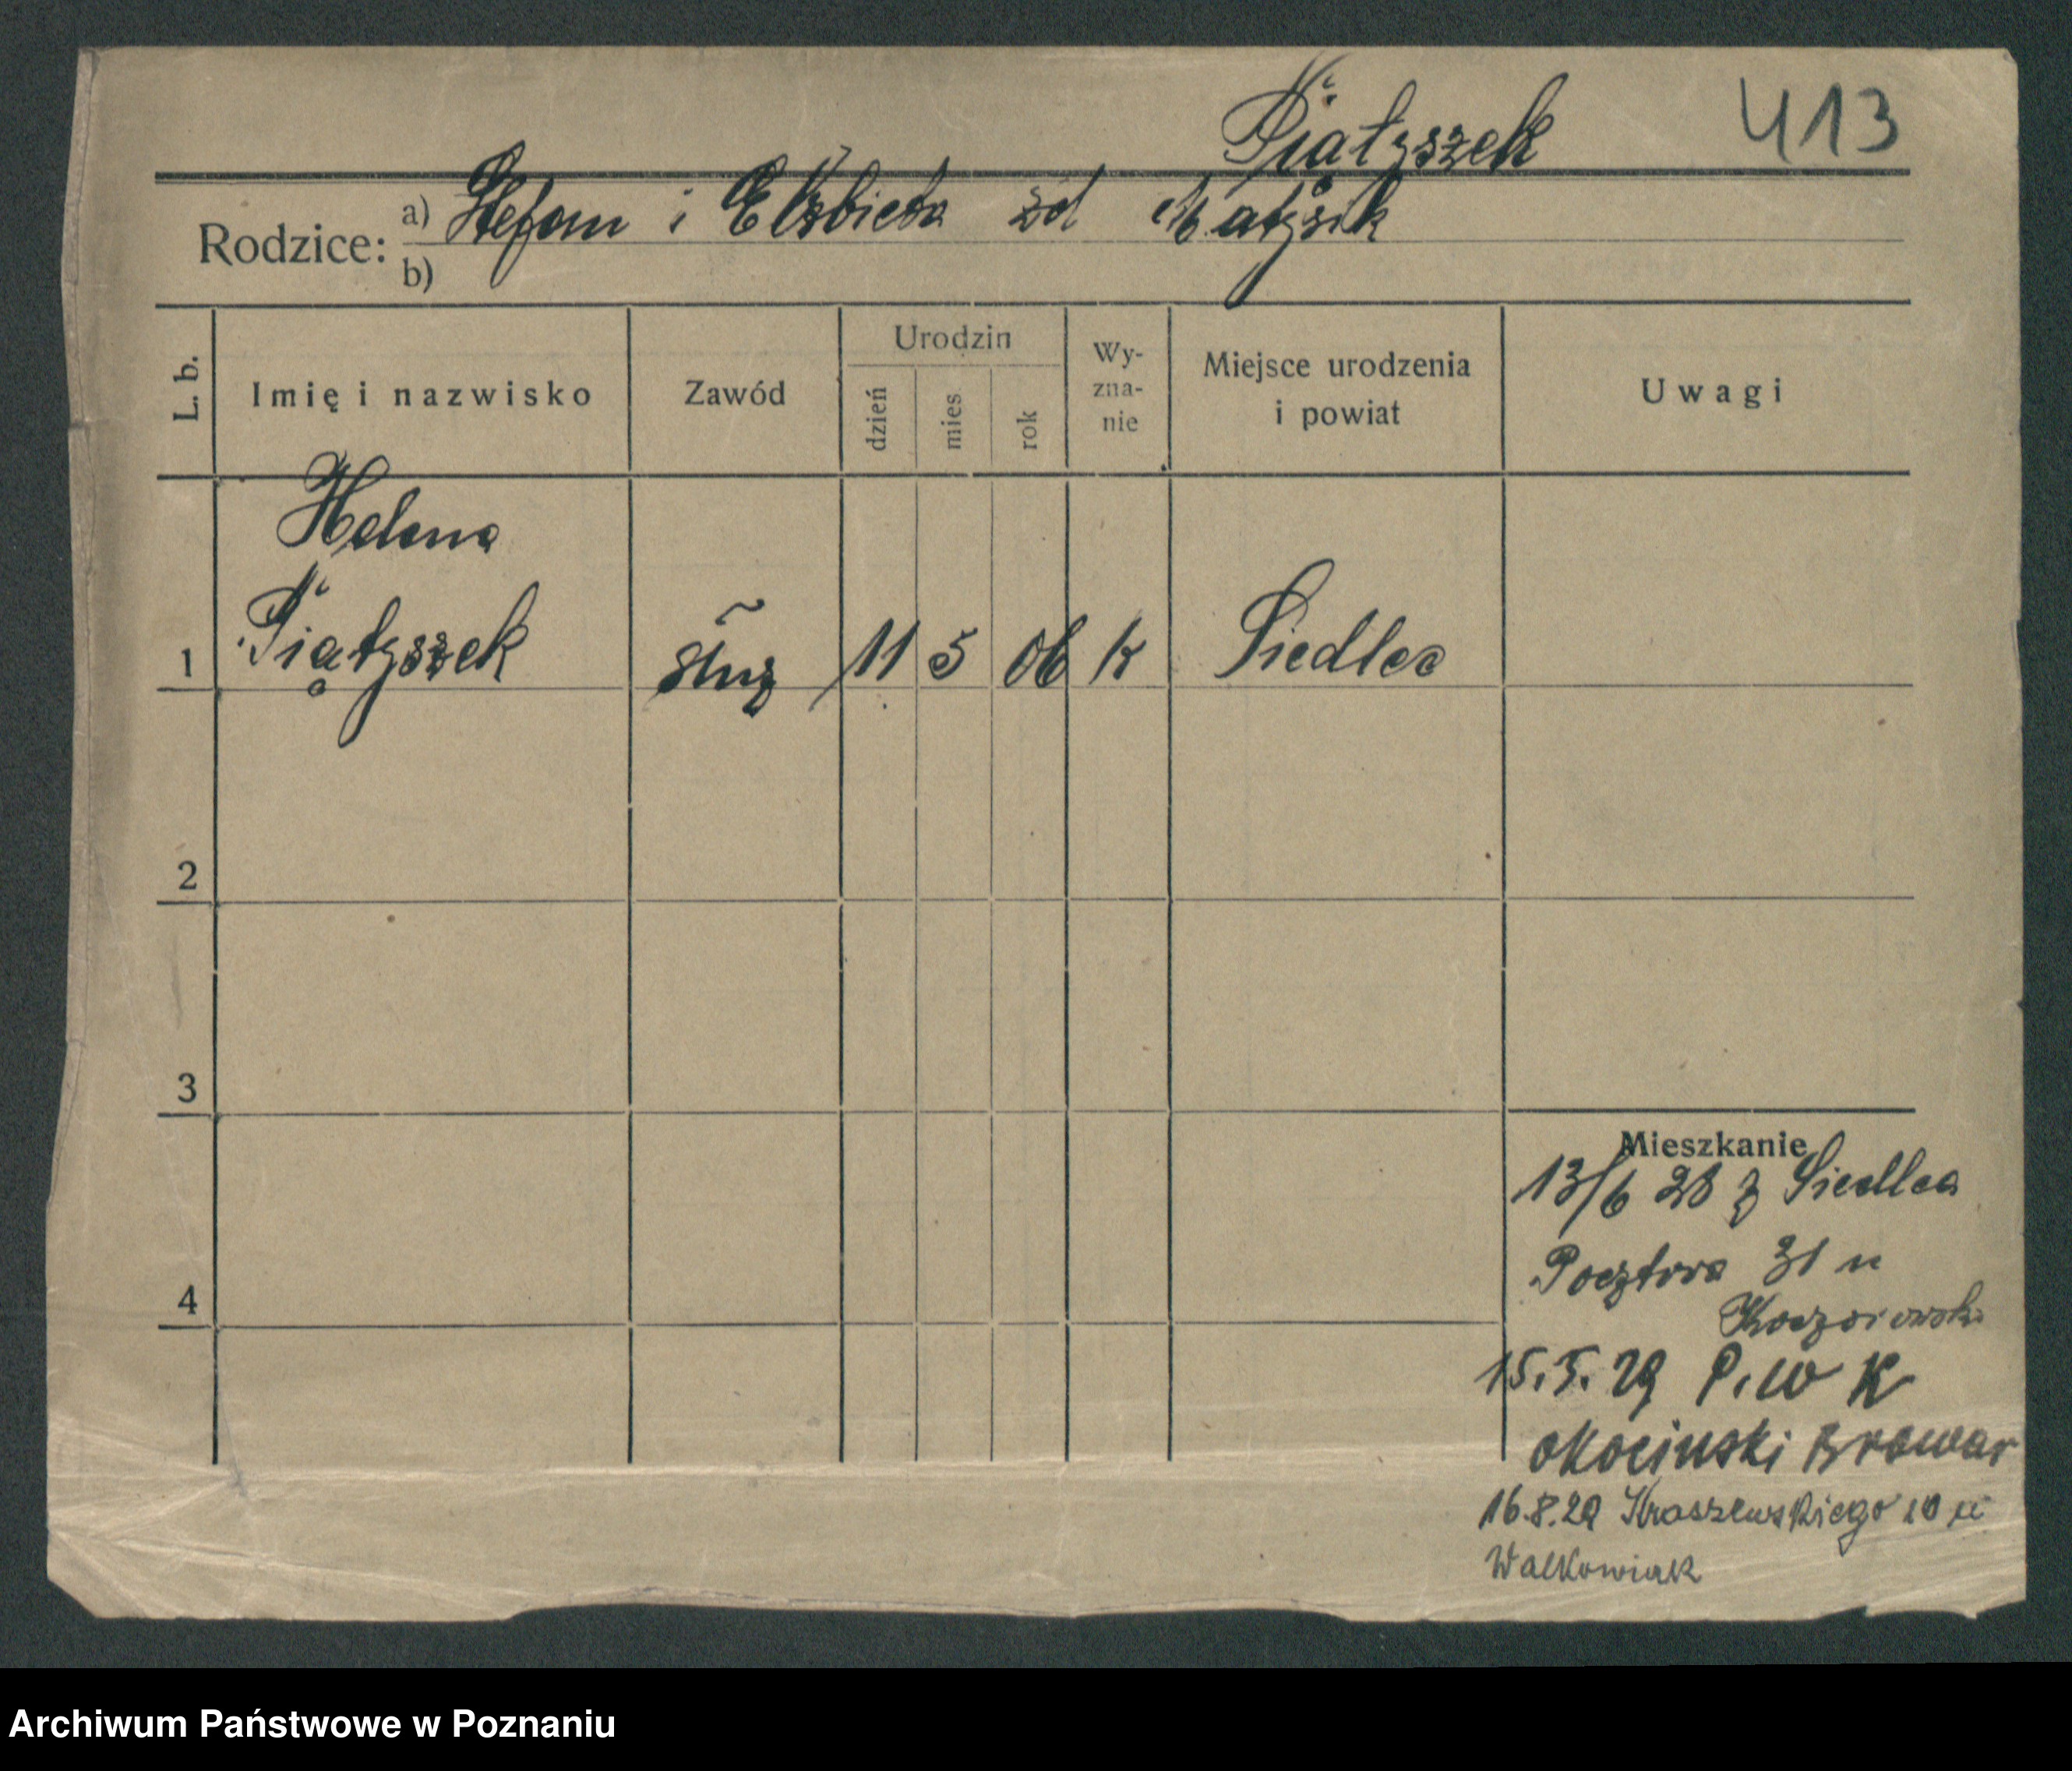 Piątyszek 413
Rodzice: a) Stefan i Elżbieta zd Matysik
b)
L. b. Imię i nazwisko Zawód Urodzin dzień mies rok Wy-zna-nie Miejsce urodzenia i powiat Uwagi
Helena
1 Piątyszek służ 11 5 06 k Siedlec
2
3
4
Mieszkanie
13/6 28 z Siedlca
Pocztowa 31 u
15.5.29 P.W K
Okocinski Browar
16.8.29 Kraszewskiego 10 u
Walkowiak
Archiwum Państwowe w Poznaniu